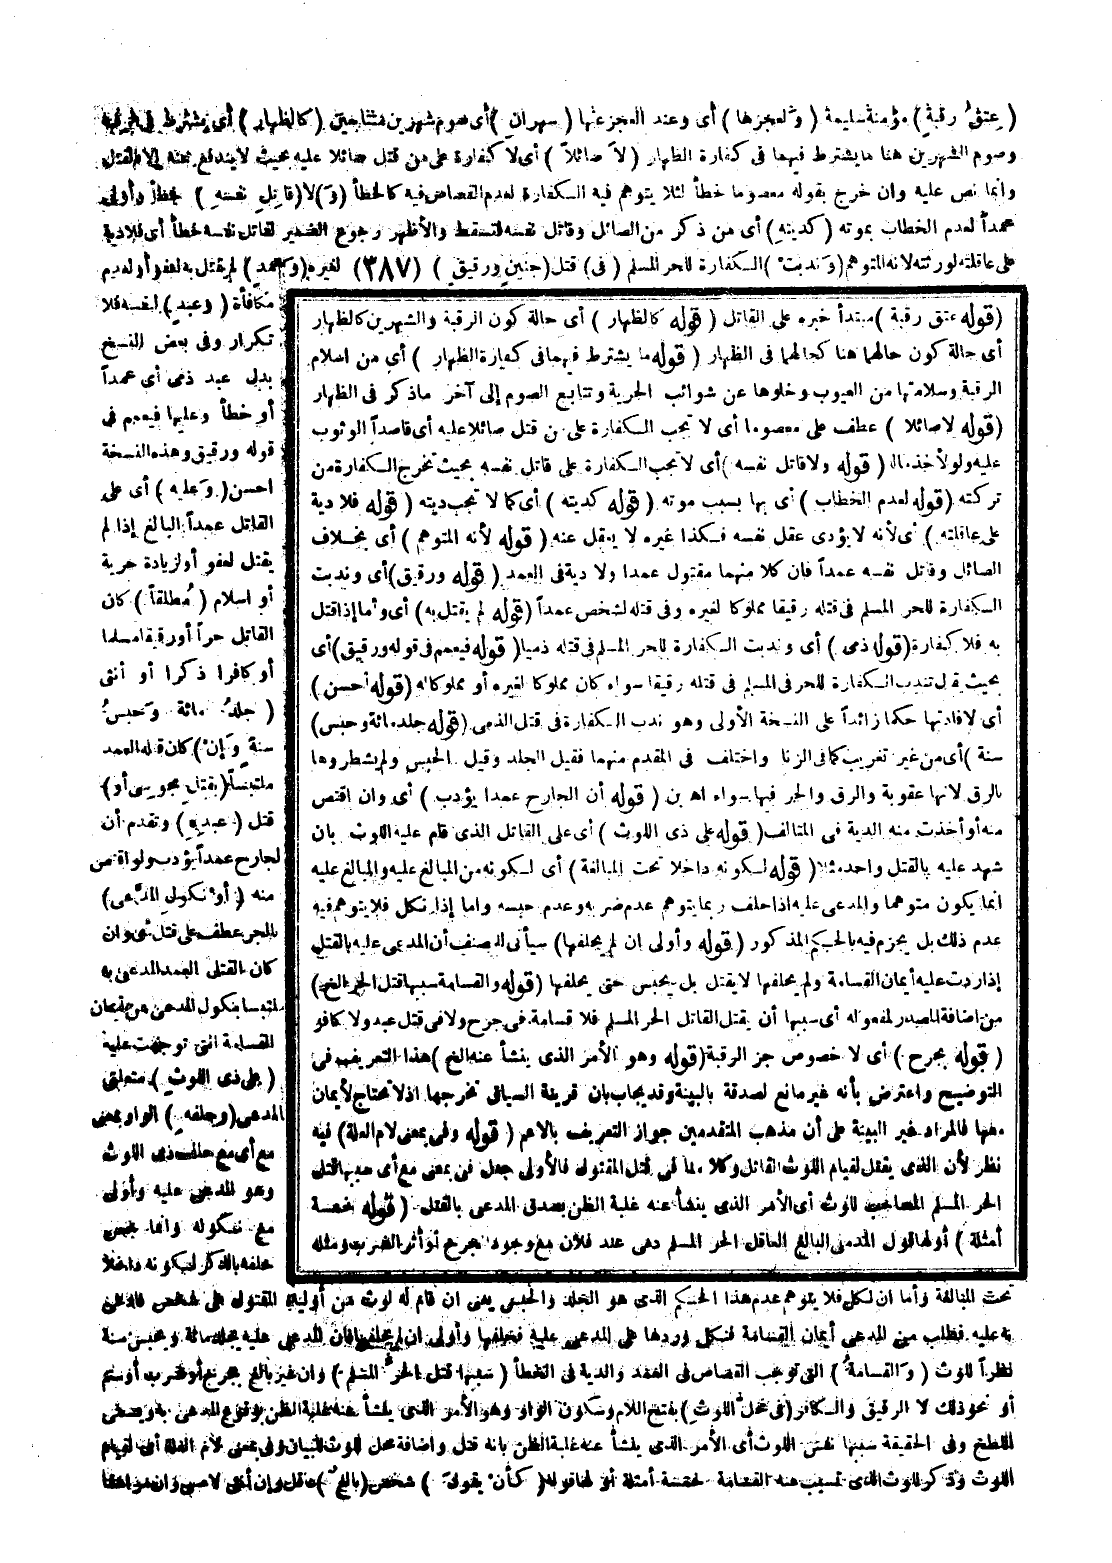 ( عتقُ رقبةٍ) مؤمنة سليمة ( ولعجزها ) أى وعند العجز عنها ( شهران ) أى صوم شهرين متتابعين (كالظهار) أى يشترط فى الرقبة
وصوم الشهرين هنا ما يشترط فيهما فى كفارة الظهار ( لا صائلاً ) أى لا كفارة على من قتل صائلا عليه بحيث لا يندفع عنه إلا بالقتل
وانما نص عليه وان خرج بقوله معصوما خطأ لئلا يتوهم فيه الكفارة لعدم القصاص فيه كالخطأ (و)لا (قاتل نفسه ) خطأ وأولى
عمداً لعدم الخطاب بموته ( كديته) أى من ذكر من الصائل وقاتل نفسه لتسقط والأظهر رجوع الضمير لقاتل نفسه خطأ أى فلا دية
على عاقلته لورثته لانه المتوهم (وندبت )الكفارة للحر المسلم ( فى) قتل (جنين ورقيق ) (٣٨٧) لغيره (وعمد) لم يقتل به لعفو أو لعدم
مكافأة ( وعبد) لنفسه فلا
تكرار وفى بعض النسخ
بدل عبد ذمى أى عمداً
أو خطأ وعليها فيعمم فى
قوله ورقيق وهذه النسخة
احسن (وعليه ) أى على
القاتل عمداً البالغ إذا لم
يقتل لعفو أو لزيادة حرية
أو اسلام ( مُطلقاً ) كان
القاتل حراً أو رقيقا مسلما
أو كافرا ذكرا أو أنثى
( جلدُ مائة وحبسُ
سنة وإنْ) كان قتله العمد
ملتبساً (بقتلِ مجوسى أو)
قتل ( عبدِه) وتقدم أن
الجارح عمداً يؤدب ولو اقتص
منه ( أو نكولِ المدَّعى)
بالجر عطف على قتل أى وان
كان القتل العمد المدعى به
ملتبسا بنكول المدعى عن أيمان
القسامة التى توجهت عليه
( على ذى اللوث ) متعلق
المدعى (وحلفه ) الواو بمعنى
مع أى مع حلف ذى اللوث
وهو المدعى عليه وأولى
مع نكوله وانما خص
حلفه بالذكر لكونه داخلا
(قوله عتق رقبة )مبتدأ خبره على القاتل ( قوله كالظهار ) أى حالة كون الرقبة والشهرين كالظهار
أى حالة كون حالهما هنا كحالهما فى الظهار ( قوله ما يشترط فيهما فى كفارة الظهار ) أى من اسلام
الرقبة وسلامتها من العيوب وخلوها عن شوائب الحرية وتتابع الصوم إلى آخر ماذكر فى الظهار
(قوله لاصائلا ) عطف على معصوما أى لا تجب الكفارة على من قتل صائلا عليه أى قاصداً الوثوب
عليه ولو لأخذ ماله ( قوله ولا قاتل نفسه )أى لا تجب الكفارة على قاتل نفسه بحيث تخرج الكفارة من
تركته (قوله لعدم الخطاب ) أى بها بسبب موته ( قوله كديته ) أى كما لا تجب ديته ( قوله فلا دية
على عاقلته ) أى لأنه لا يؤدى عقل نفسه فكذا غيره لا يعقل عنه ( قوله لأنه المتوهم ) أى بخلاف
الصائل وقاتل نفسه عمداً فان كلا منهما مقتول عمدا ولا دية فى العمد ( قوله ورقيق)أى وندبت
الكفارة للحر المسلم فى قتله رقيقا مملوكا لغيره وفى قتله لشخص عمداً (قوله لم يقتل به ) أى وأما إذا قتل
به فلا كفارة (قوله ذمى ) أى وندبت الكفارة للحر المسلم فى قتله ذميا( قوله فيعمم فى قوله ورقيق)أى
بحيث يقال تندب الكفارة للحر فى المسلم فى قتله رقيقا سواء كان مملوكا لغيره أو مملوكا له (قوله أحسن )
أى لافادتها حكما زائداً على النسخة الأولى وهو ندب الكفارة فى قتل الذمى (قوله جلد مائة وحبس
سنة ) أى من غير تغريب كما فى الزنا واختلف فى المقدم منهما فقيل الجلد وقيل الحبس ولم يشطروها
بالرق لانها عقوبة والرق والحر فيها سواء اه بن ( قوله أن الجارح عمدا يؤدب ) أى وان اقتص
منه أو أخذت منه الدية فى المتالف( قوله على ذى اللوث ) أى على القاتل الذى قام عليه اللوث بان
شهد عليه بالقتل واحد مثلا ( قوله لكونه داخلا تحت المبالغة ) أى لكونه من المبالغ عليه والمبالغ عليه
انما يكون متوهما والمدعى عليه اذا حلف ربما يتوهم عدم ضربه وعدم حبسه واما إذا نكل فلا يتوهم فيه
عدم ذلك بل يجزم فيه بالحكم المذكور ( قوله وأولى ان لم يحلفها) سيأتى للمصنف أن المدعى عليه بالقتل
إذا ردت عليه أيمان القسامة ولم يحلفها لا يقتل بل يحبس حتى يحلفها (قوله والقسامة سببها قتل الحر الخ)
من اضافة المصدر لمفعوله أى سببها أن يقتل القاتل الحر المسلم فلا قسامة فى جرح ولا فى قتل عبد ولا كافر
( قوله بجرح ) أى لا خصوص جز الرقبة (قوله وهو الأمر الذى ينشأ عنه الخ )هذا التعريف فى
التوضيح واعترض بأنه غير مانع لصدقة بالبينة وقد يجاب بان قرينة السياق تخرجها اذ لا تحتاج لأيمان
معها فالمراد غير البينة على أن مذهب المتقدمين جواز التعريف بالاعم ( قوله وفى بمعنى لام العلة) فيه
نظر لأن الذى يقتل لقيام اللوث القاتل وكلامنا فى قتل المقتول فالأولى جعل فى بمعنى مع أى سببها قتل
الحر المسلم المصاحب للوث أى الأمر الذى ينشأ عنه غلبة الظن بصدق المدعى بالقتل ( قوله بخمسة
أمثلة ) أولها قول المدمى البالغ العاقل الحر المسلم دمى عند فلان مع وجود الجرح أو أثر الضرب ومثله
تحت المبالغة وأما ان نكل فلا يتوهم عدم هذا الحكم الذى هو الجلد والحبس يعنى ان قام له لوث من أولياء المقتول على شخص فادعى
به عليه فطلب من المدعى أيمان القسامة فنكل وردها على المدعى عليه فحلفها وأولى ان لم يحلفها فان المدعى عليه يجلد مائة ويحبس سنة
نظراً للوث ( والقسامةُ ) التى توجب القصاص فى العمد والدية فى الخطأ ( سببُها قتلُ الحرِّ المسلم ) وان غير بالغ بجرح أو ضرب أو سم
أو نحو ذلك لا الرقيق والكافر (فى محلِّ اللوث )بفتح اللام وسكون الواو وهو الأمر الذى ينشأ عنه غلبة الظن بوقوع المدعى به ويسمى
اللطخ وفى الحقيقة سببها نفس اللوث أى الأمر الذى ينشأ عنه غلبة الظن بانه قتل واضافة محل للوث للبيان وفى بمعنى لام العلة أى لقيام
اللوث وذكر للوث الذى تتسبب عنه القسامة خمسة أمثلة أولها قوله( كأنْ يقولَ ) شخص (بالغٌ )عاقل وإن أنثى لا صبى وان مراهقا